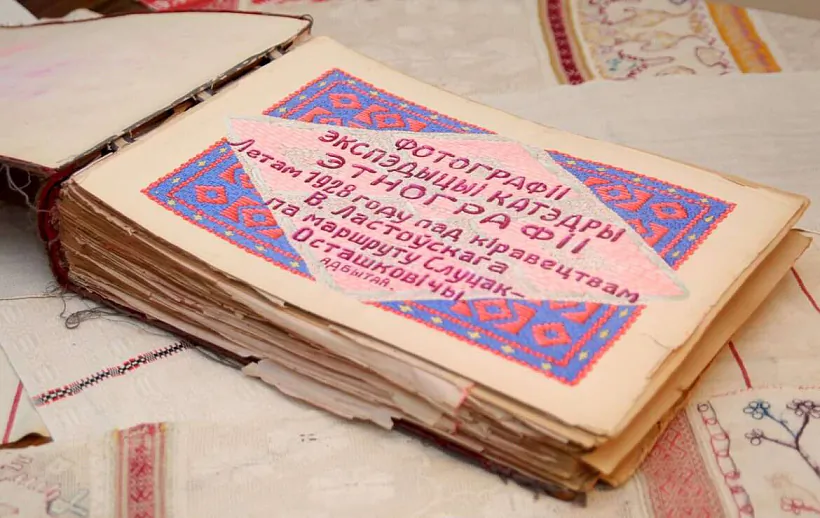 ФОТОГРАФІІ
ЭКСПЭДЫЦЫІ КАТЭДРЫ
ЭТНОГРАФІІ
Летам 1928 году пад кіравецтвам
В Ластоўскага
па маршруту Слуцак–
Осташковічы
АДБЫТАЙ.